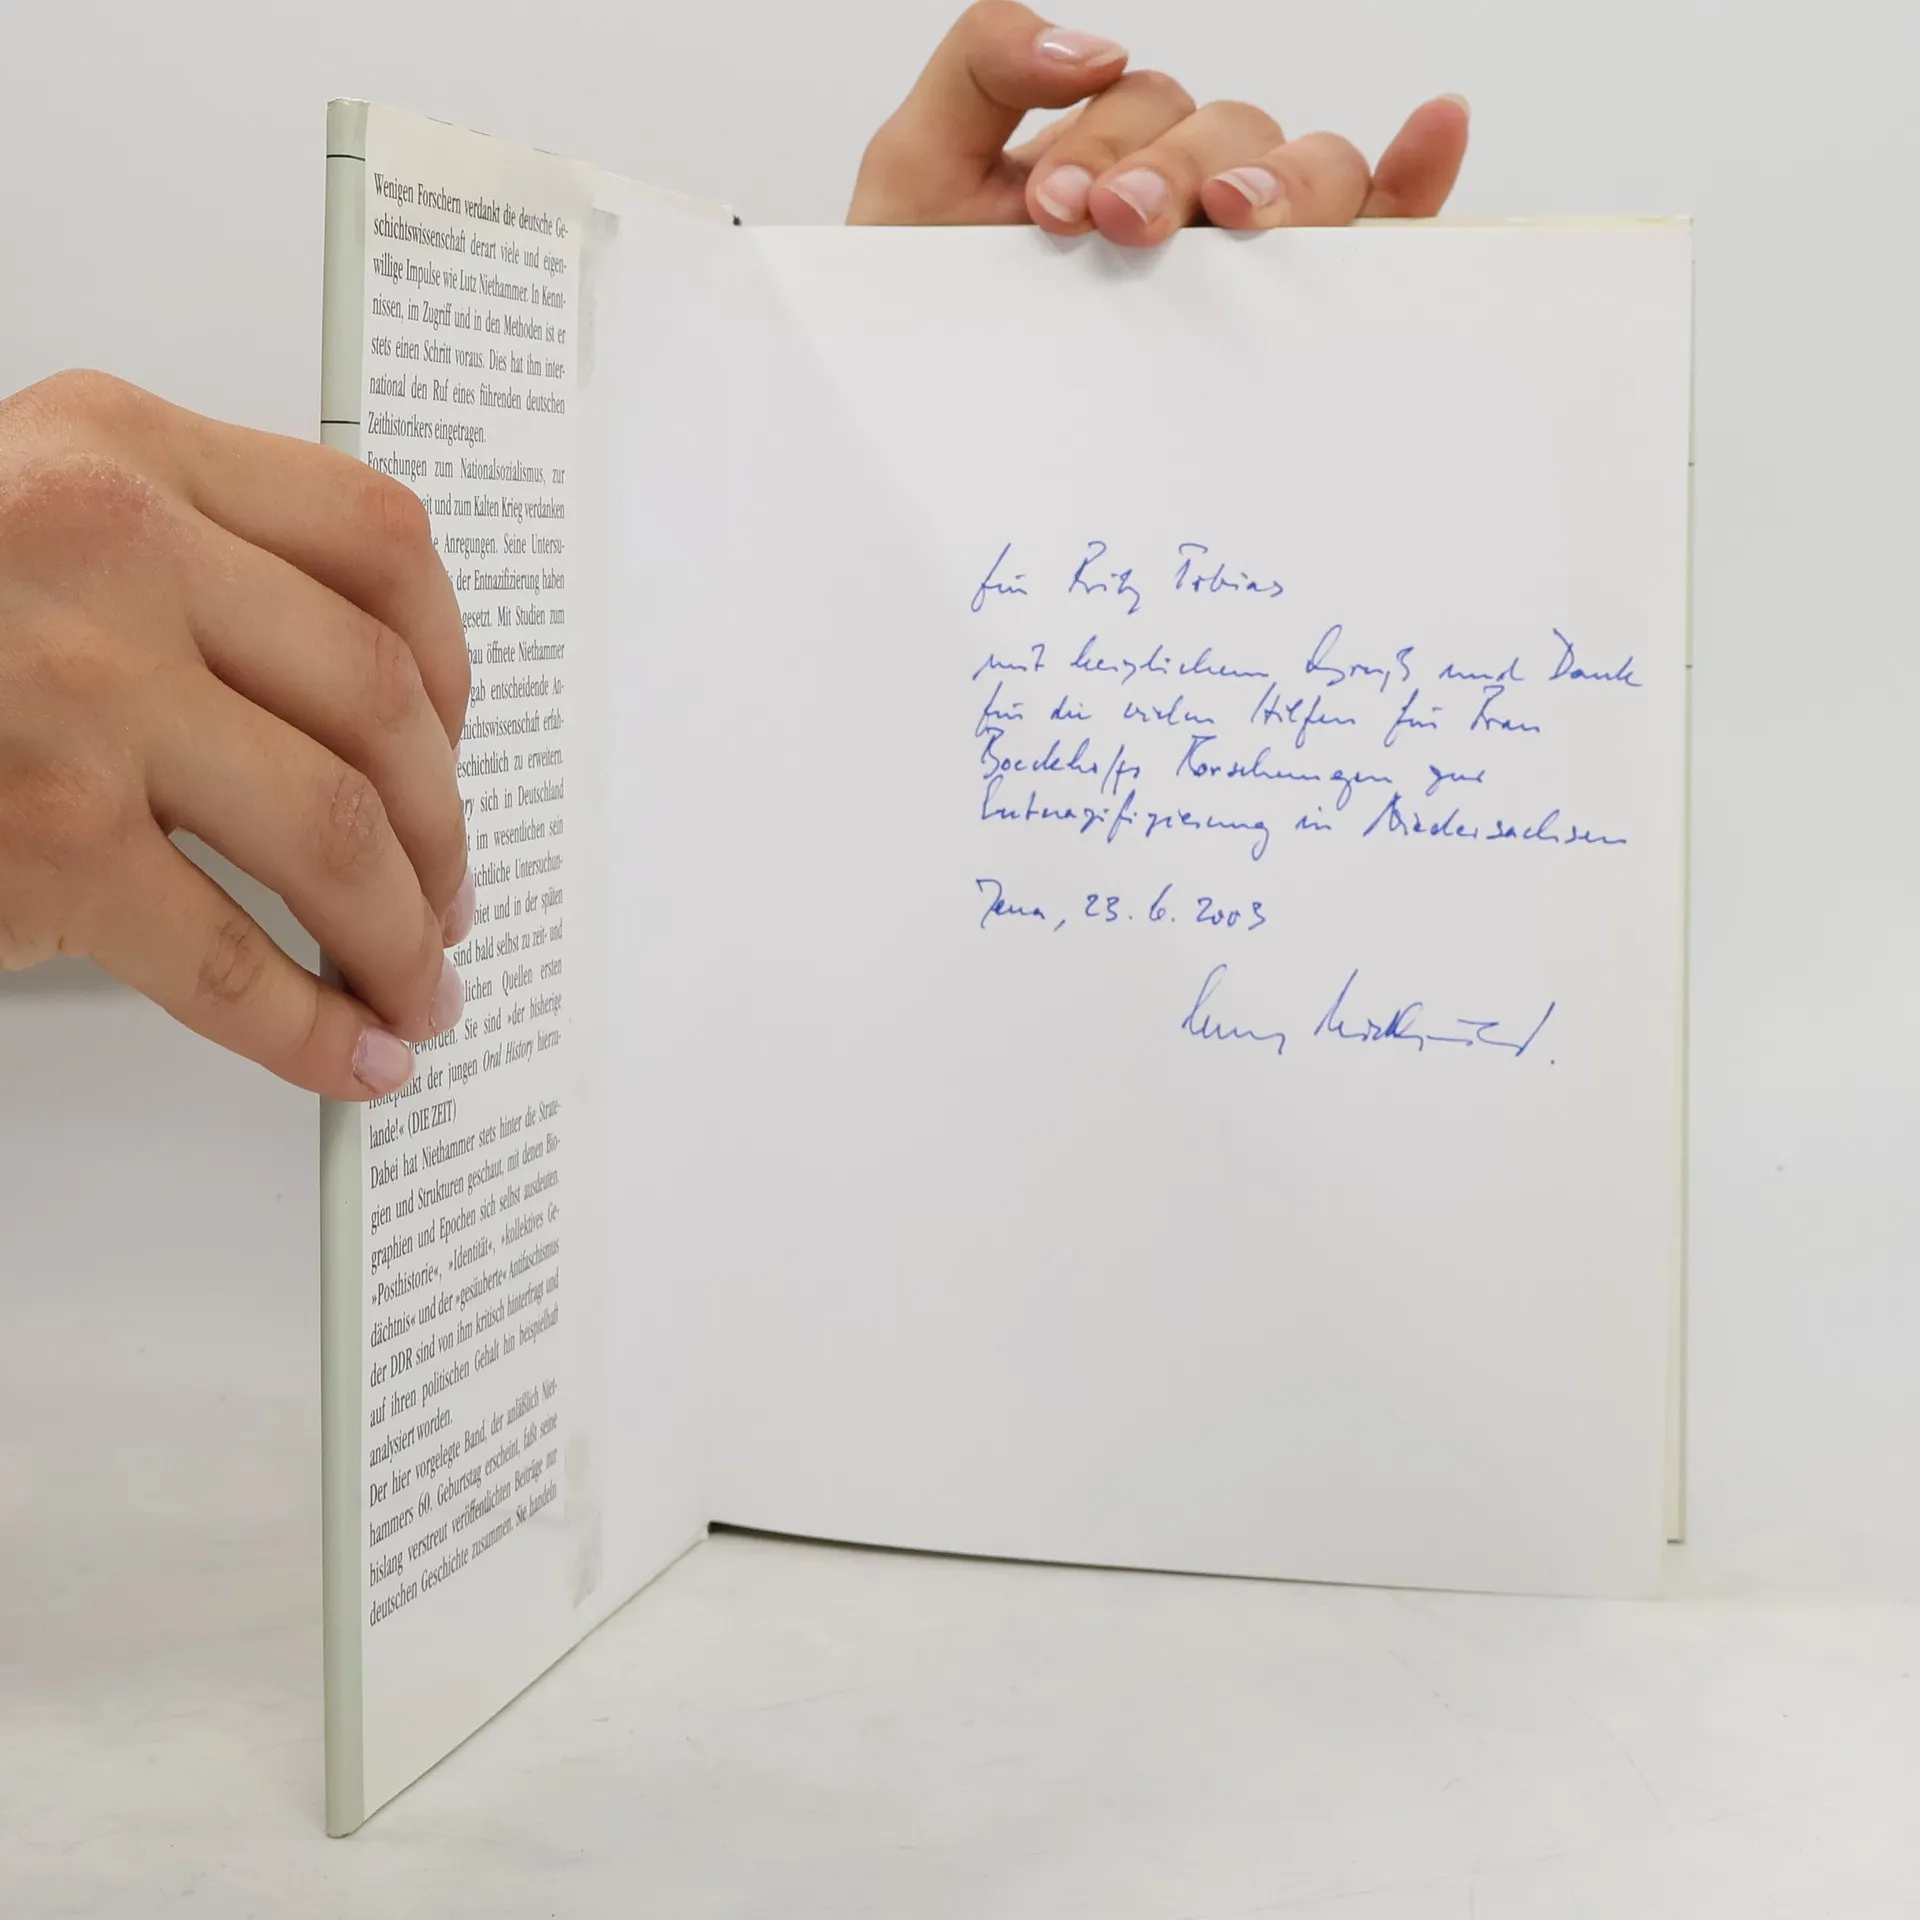 Wenigen Forschern verdankt die deutsche Ge-
schichtswissenschaft derart viele und eigen-
willige Impulse wie Lutz Niethammer. In Kennt-
nissen, im Zugriff und in den Methoden ist er
stets einen Schritt voraus. Dies hat ihm inter-
national den Ruf eines führenden deutschen
Zeithistorikers eingetragen.
Forschungen zum Nationalsozialismus, zur
eit und zum Kalten Krieg verdanken
e Anregungen. Seine Untersu-
der Entnazifizierung haben
gesetzt. Mit Studien zum
bau öffnete Niethammer
gab entscheidende An-
hichtswissenschaft erfah-
eschichtlich zu erweitern.
ry sich in Deutschland
t im wesentlichen sein
ichtliche Untersuchun-
biet und in der späten
sind bald selbst zu zeit- und
lichen Quellen ersten
geworden. Sie sind »der bisherige
Höhepunkt der jungen Oral History hierzu-
lande!« (DIE ZEIT)
Dabei hat Niethammer stets hinter die Strate-
gien und Strukturen geschaut, mit denen Bio-
graphien und Epochen sich selbst ausdeuten.
»Posthistorie«, »Identität«, »kollektives Ge-
dächtnis« und der »gesäuberte« Antifaschismus
der DDR sind von ihm kritisch hinterfragt und
auf ihren politischen Gehalt hin beispielhaft
analysiert worden.
Der hier vorgelegte Band, der anläßlich Niet-
hammers 60. Geburtstag erscheint, faßt seine
bislang verstreut veröffentlichten Beiträge zur
deutschen Geschichte zusammen. Sie handeln
für Fritz Tobias
mit herzlichem Gruß und Dank
für die vielen Hilfen für Frau
Boeckhoffs Forschungen zur
Entnazifizierung in Niedersachsen
Jena, 23. 6. 2003